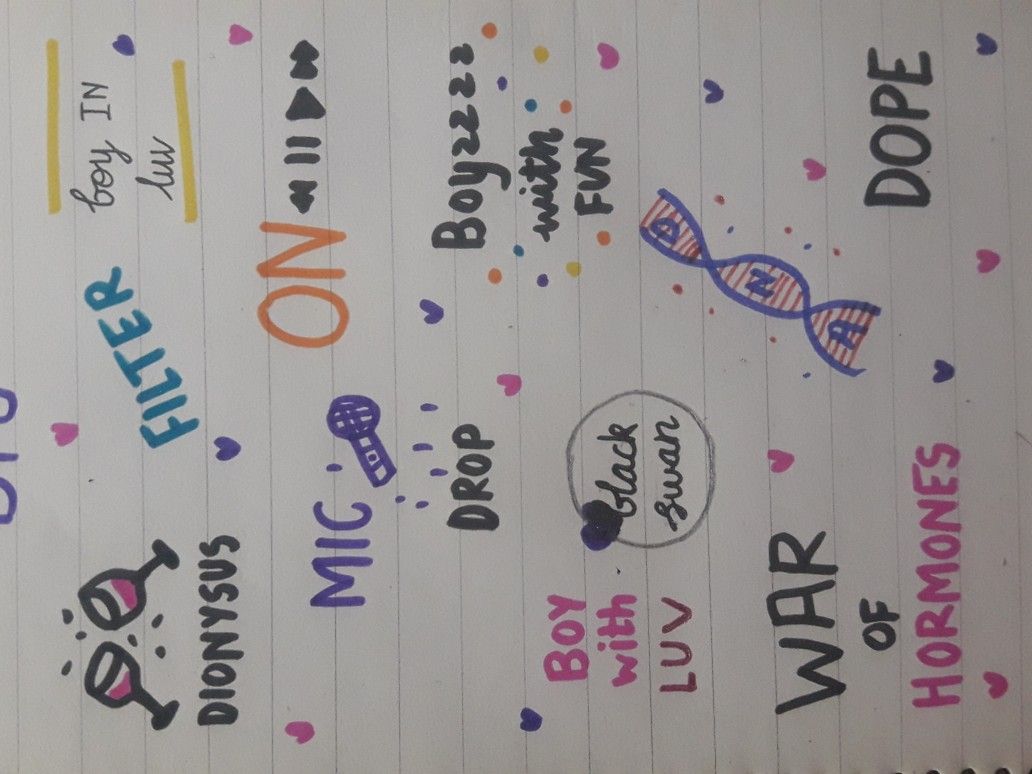 DIONYSUS
FILTER
boy IN
luv
MIC
DROP
ON
Boyzzzz
with
FUN
BOY
with
LUV
black
swan
DNA
WAR
OF
HORMONES
DOPE